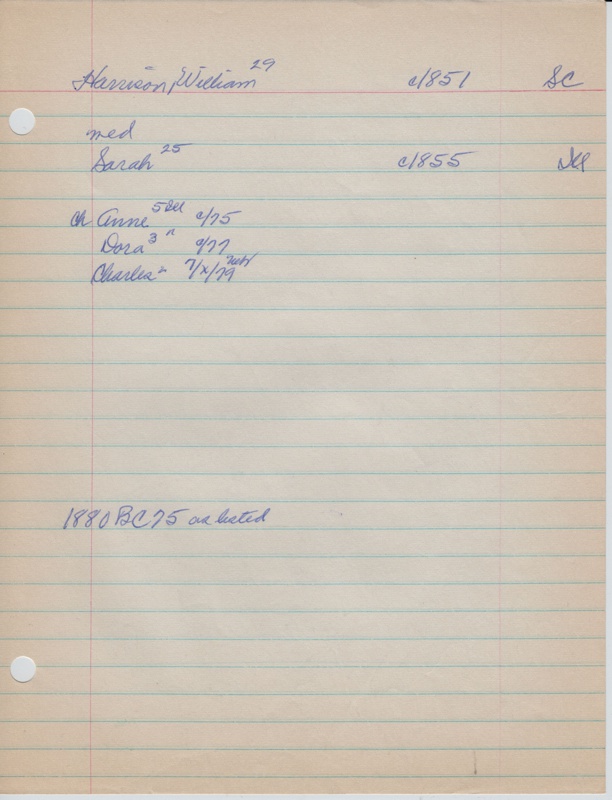 Harrison, William 29 c/1851 SC
med
Sarah 25 c/1855 Ill
ch Anne 5 Ill c/75
Dora 3 " c/77
Charles " 7/x/79
1880 BC 75 as listed